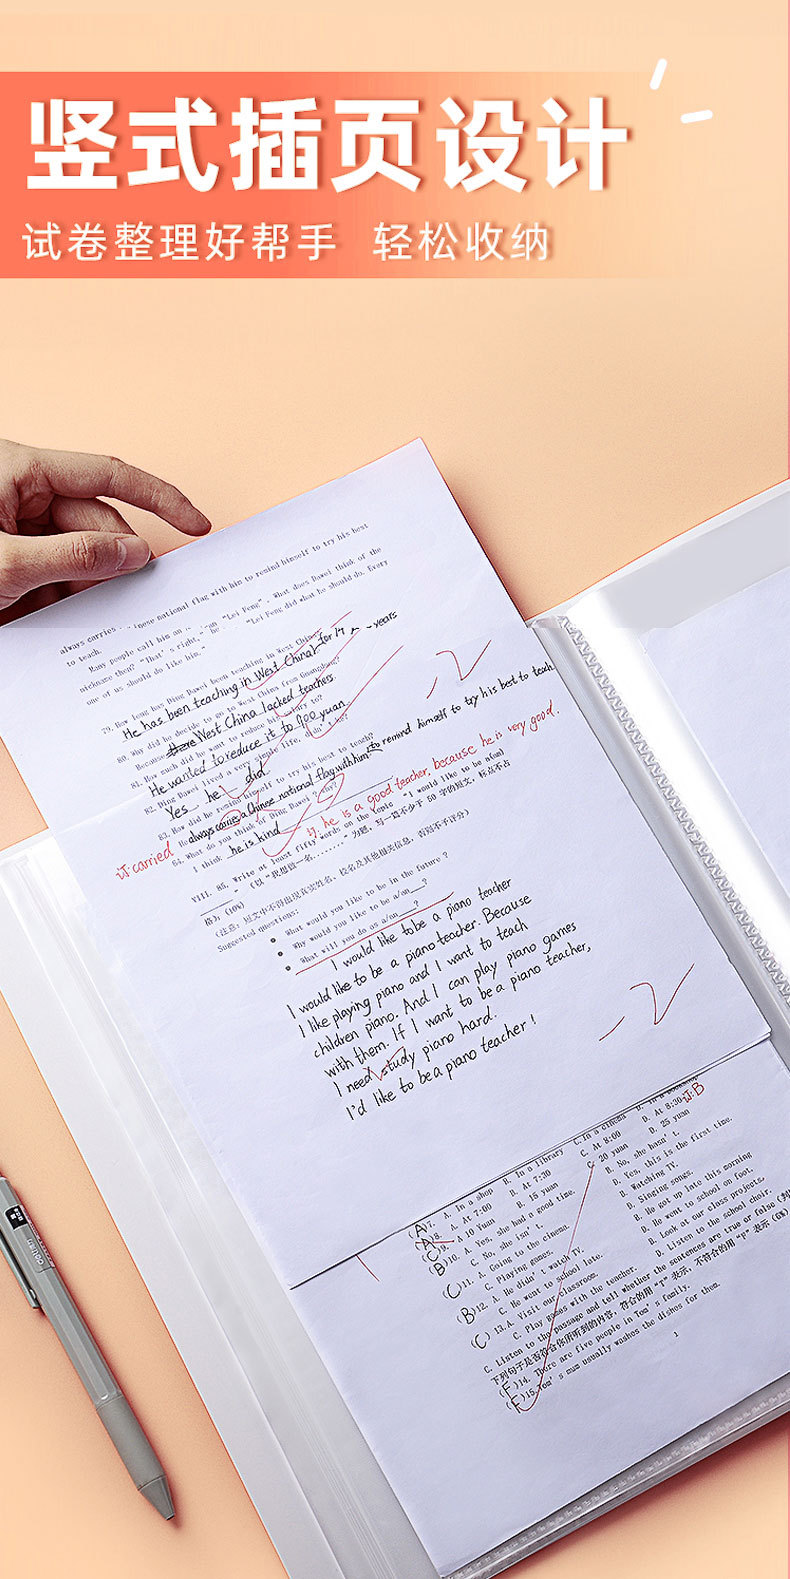 竖式插页设计
试卷整理好帮手 轻松收纳
always carries
nese national flag with him to remind himself to try his best
to teach.
Many people call him an "Lei Feng". What does Dawei think of the
nickname then? "That's right," he "Lei Feng did what he should do. Every
one of us should do like him."
79. How long has Ding Dawei been teaching in West China?
He has been teaching in West China for 17 years
80. Why did he decide to go to West China from Guangzhou?
Because West China lacked teachers
81. How much did he want to reduce his salary to?
He wanted to reduce it to 700 yuan
82. Ding Dawei lived a very simple life, didn't he?
Yes he did
83. How did he remind himself to try his best to teach?
He always carrie a Chinese national flag with him to remind himself to try his best to teah
订: carried
84. What do you think of Ding Dawei? Why?
I think he is kind
订. he is a good teacher, because he is very good.
-2
VIII. 85. Write at least fifty words on the topic "I would like to be a(an)
(以"我想当一名……"为题,写一篇不少于 50 字的短文,标点不占
格). (10%)
(注意:短文中不得出现真实姓名、校名及其他相关信息,否则不予评分)
Suggested questions:
● What would you like to be in the future?
● Why would you like to be a/an___?
● What will you do as a/an___?
I would like to be a piano teacher
I would like to be a piano teacher. Because
I like playing piano and I want to teach
children piano. And I can play piano games
with them. If I want to be a piano teacher,
I need study piano hard.
I'd like to be a piano teacher!
-2
(A)7. A. In a shop B. In a library C. In a cinema D. In a bookshop
(A)8. A. At 7:00 B. At 7:30 C. At 8:00 D. At 8:30 订:B
(C)9. A 10 Yuan B. 15 yuan C. 20 yuan D. 25 yuan
(B)10. A. Yes, she had a good time. B. No, she hasn't.
C. No, she isn't. D. Yes, this is the first time.
(C)11. A. Going to the cinema. B. Watching TV.
C. Playing games. D. Singing songs.
(B)12. A. He didn't watch TV. B. He got up late this morning
C. He went to school late. D. He went to school on foot.
(C)13. A. Visit our classroom. B. Look at our class projects.
C. Play games with the teacher. D. Listen to the school choir.
C. Listen to the passage and tell whether the sentences are true or false (判
下列句子是否符合你所听到的内容,符合的用"T"表示,不符合的用"F"表示 (6%)
(F)14. There are five people in Tom's family.
(F)15. Tom's mum usually washes the dishes for them.
1